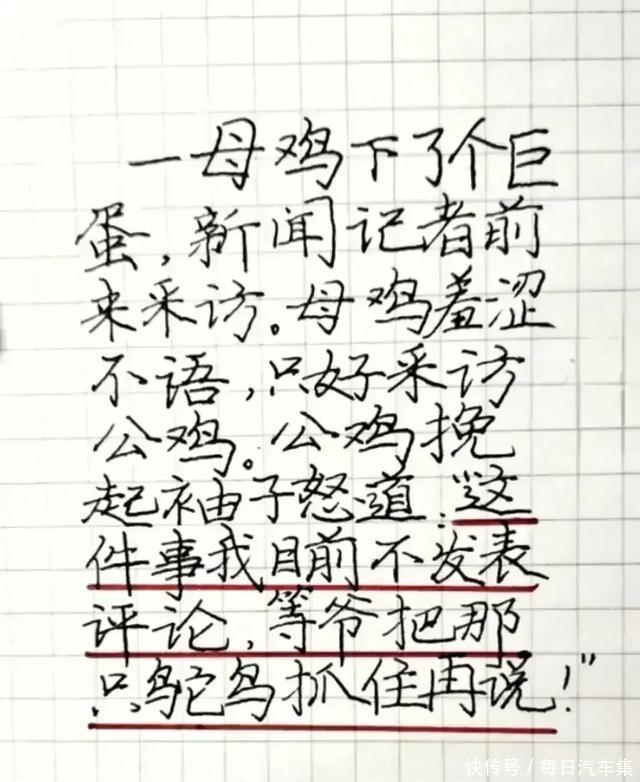 一母鸡下了个巨
蛋,新闻记者前
来采访。母鸡羞涩
不语,只好采访
公鸡。公鸡挽
起袖子怒道:“这
件事我目前不发表
评论,等爷把那
只鸵鸟抓住再说!”
快传号/每日汽车集